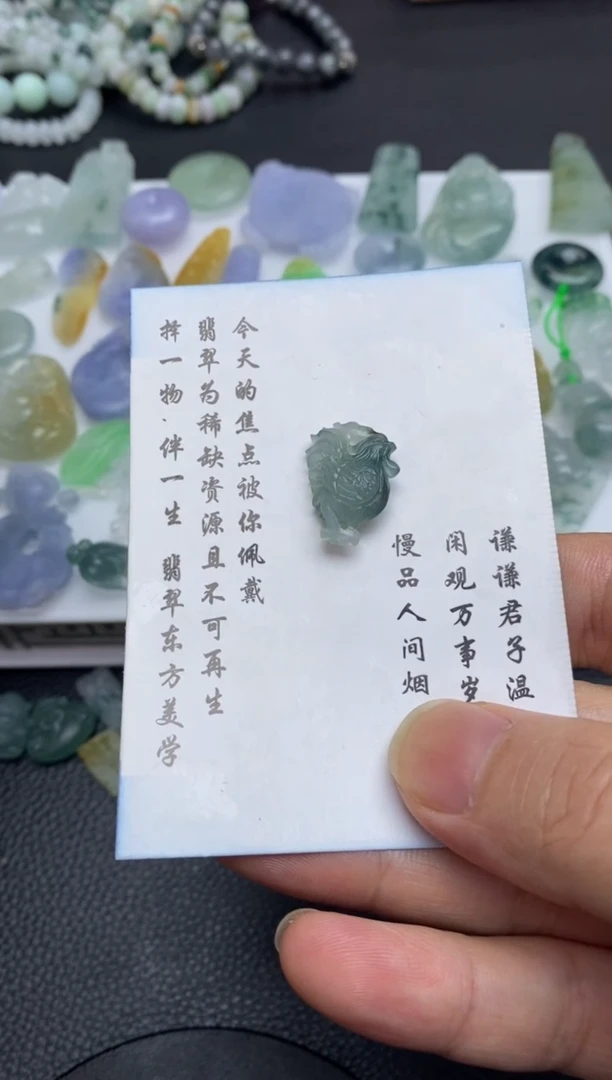 谦谦君子温
闲观万事岁
慢品人间烟
今天的焦点被你佩戴
翡翠为稀缺资源且不可再生
择一物·伴一生 翡翠东方美学